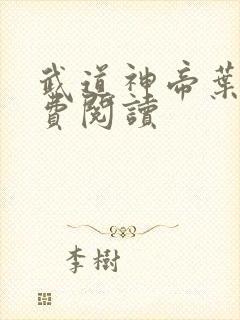 武道神帝葉
費閱讀
李樹